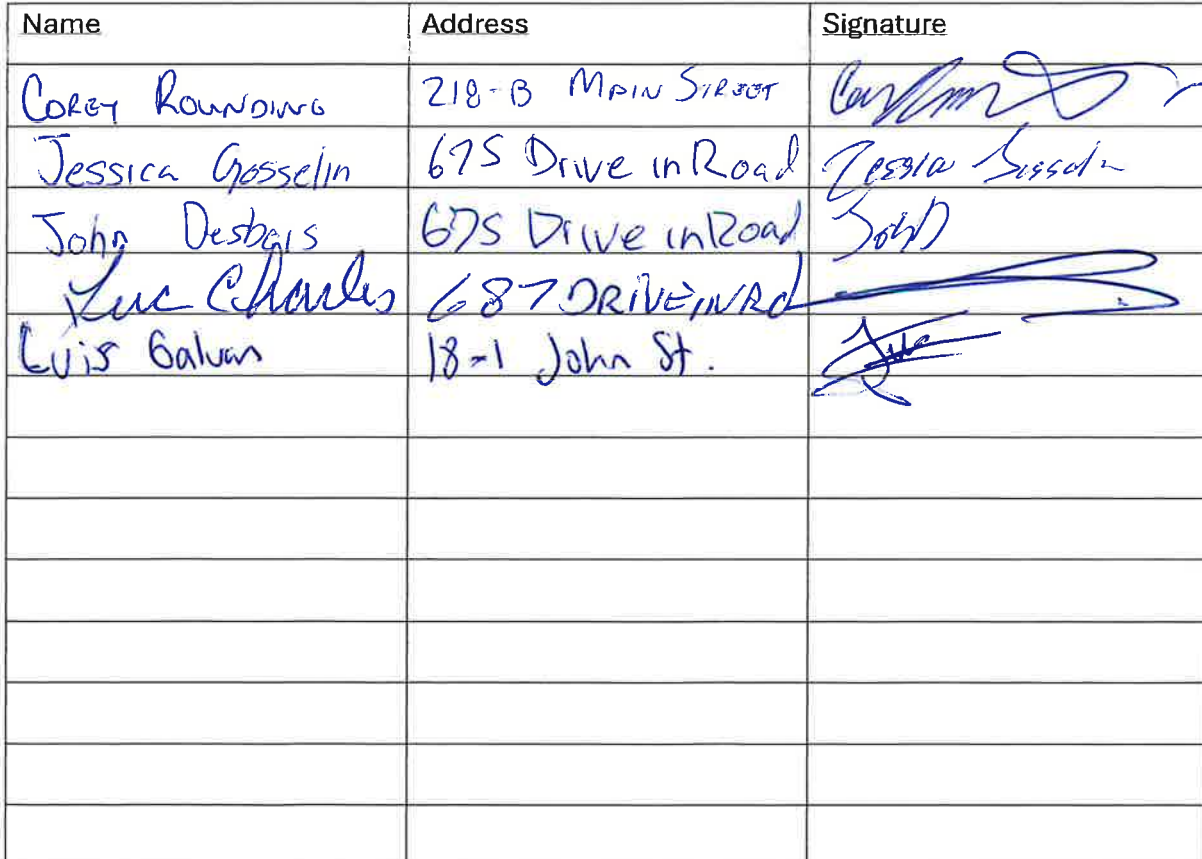 Name Address Signature
Corey Rounding 218-B Main Street
Jessica Gosselin 675 Drive in Road
John Desbois 675 Drive in Road JohD
Luc Charles 687 DRIVE IN Rd
Luis Galvan 18-1 John St.